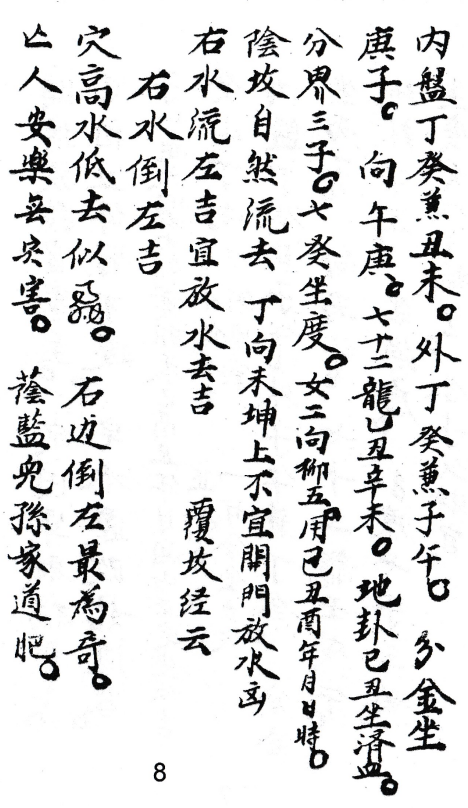 内盤丁癸兼丑未。外丁癸兼子午。分金坐
庚子。向午庚。七十二龍乙丑辛未。地卦巳丑坐
分界三子。七癸坐度。女二向柳五。用巳丑酉年月日時。
陰坟自然流去 丁向未坤上不宜開門放水凶
右水流左吉宜放水去吉 覆坟经云
右水倒左吉
穴高水低去似 。右边倒左最為奇。
亡人安樂無灾害。蔭蓝兒孫家道肥。
8